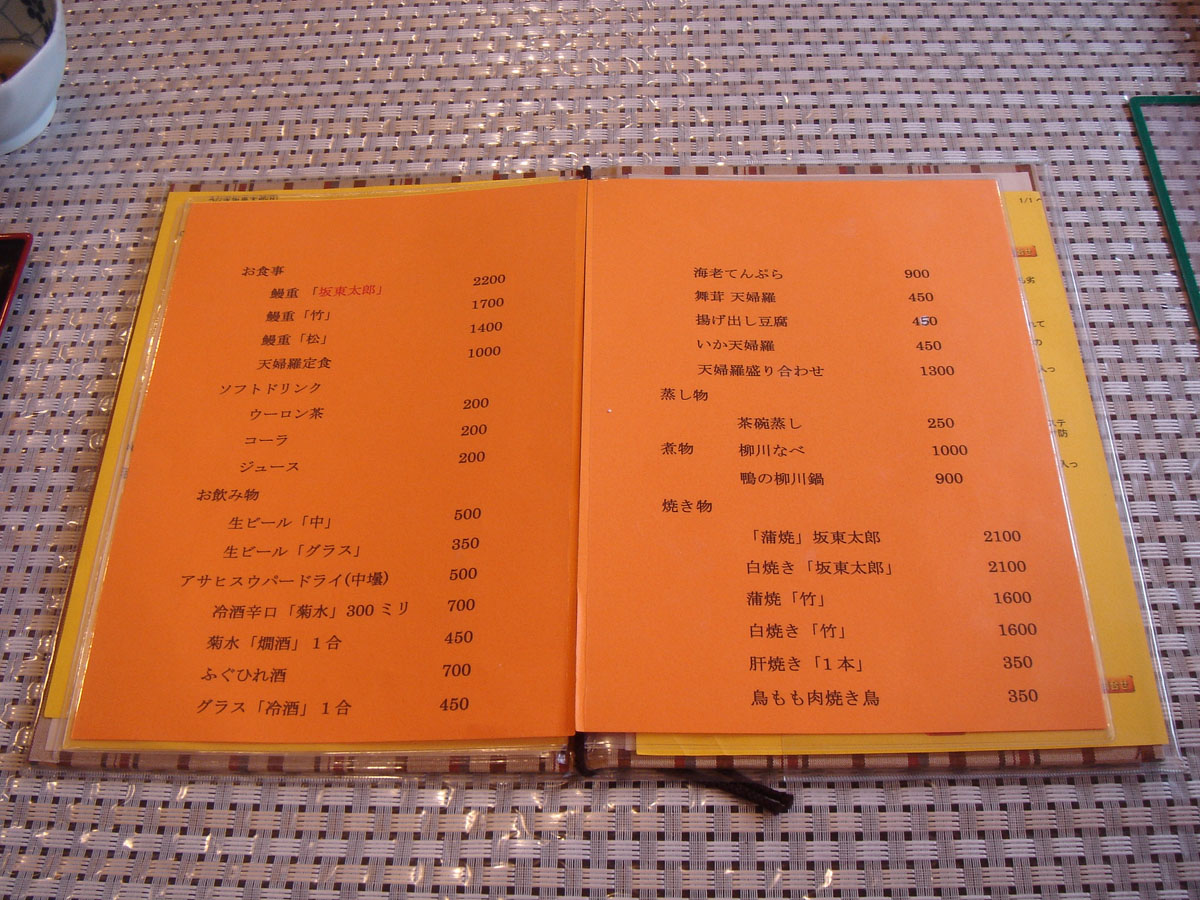 お食事
鰻重 「坂東太郎」 2200
鰻重「竹」 1700
鰻重「松」 1400
天婦羅定食 1000
ソフトドリンク
ウーロン茶 200
コーラ 200
ジュース 200
お飲み物
生ビール「中」 500
生ビール「グラス」 350
アサヒスウパードライ(中壜) 500
冷酒辛口「菊水」300ミリ 700
菊水「燗酒」1合 450
ふぐひれ酒 700
グラス「冷酒」1合 450
海老てんぷら 900
舞茸 天婦羅 450
揚げ出し豆腐 450
いか天婦羅 450
天婦羅盛り合わせ 1300
蒸し物
茶碗蒸し 250
煮物 柳川なべ 1000
鴨の柳川鍋 900
焼き物
「蒲焼」坂東太郎 2100
白焼き「坂東太郎」 2100
蒲焼「竹」 1600
白焼き「竹」 1600
肝焼き「1本」 350
鳥もも肉焼き鳥 350
1/1